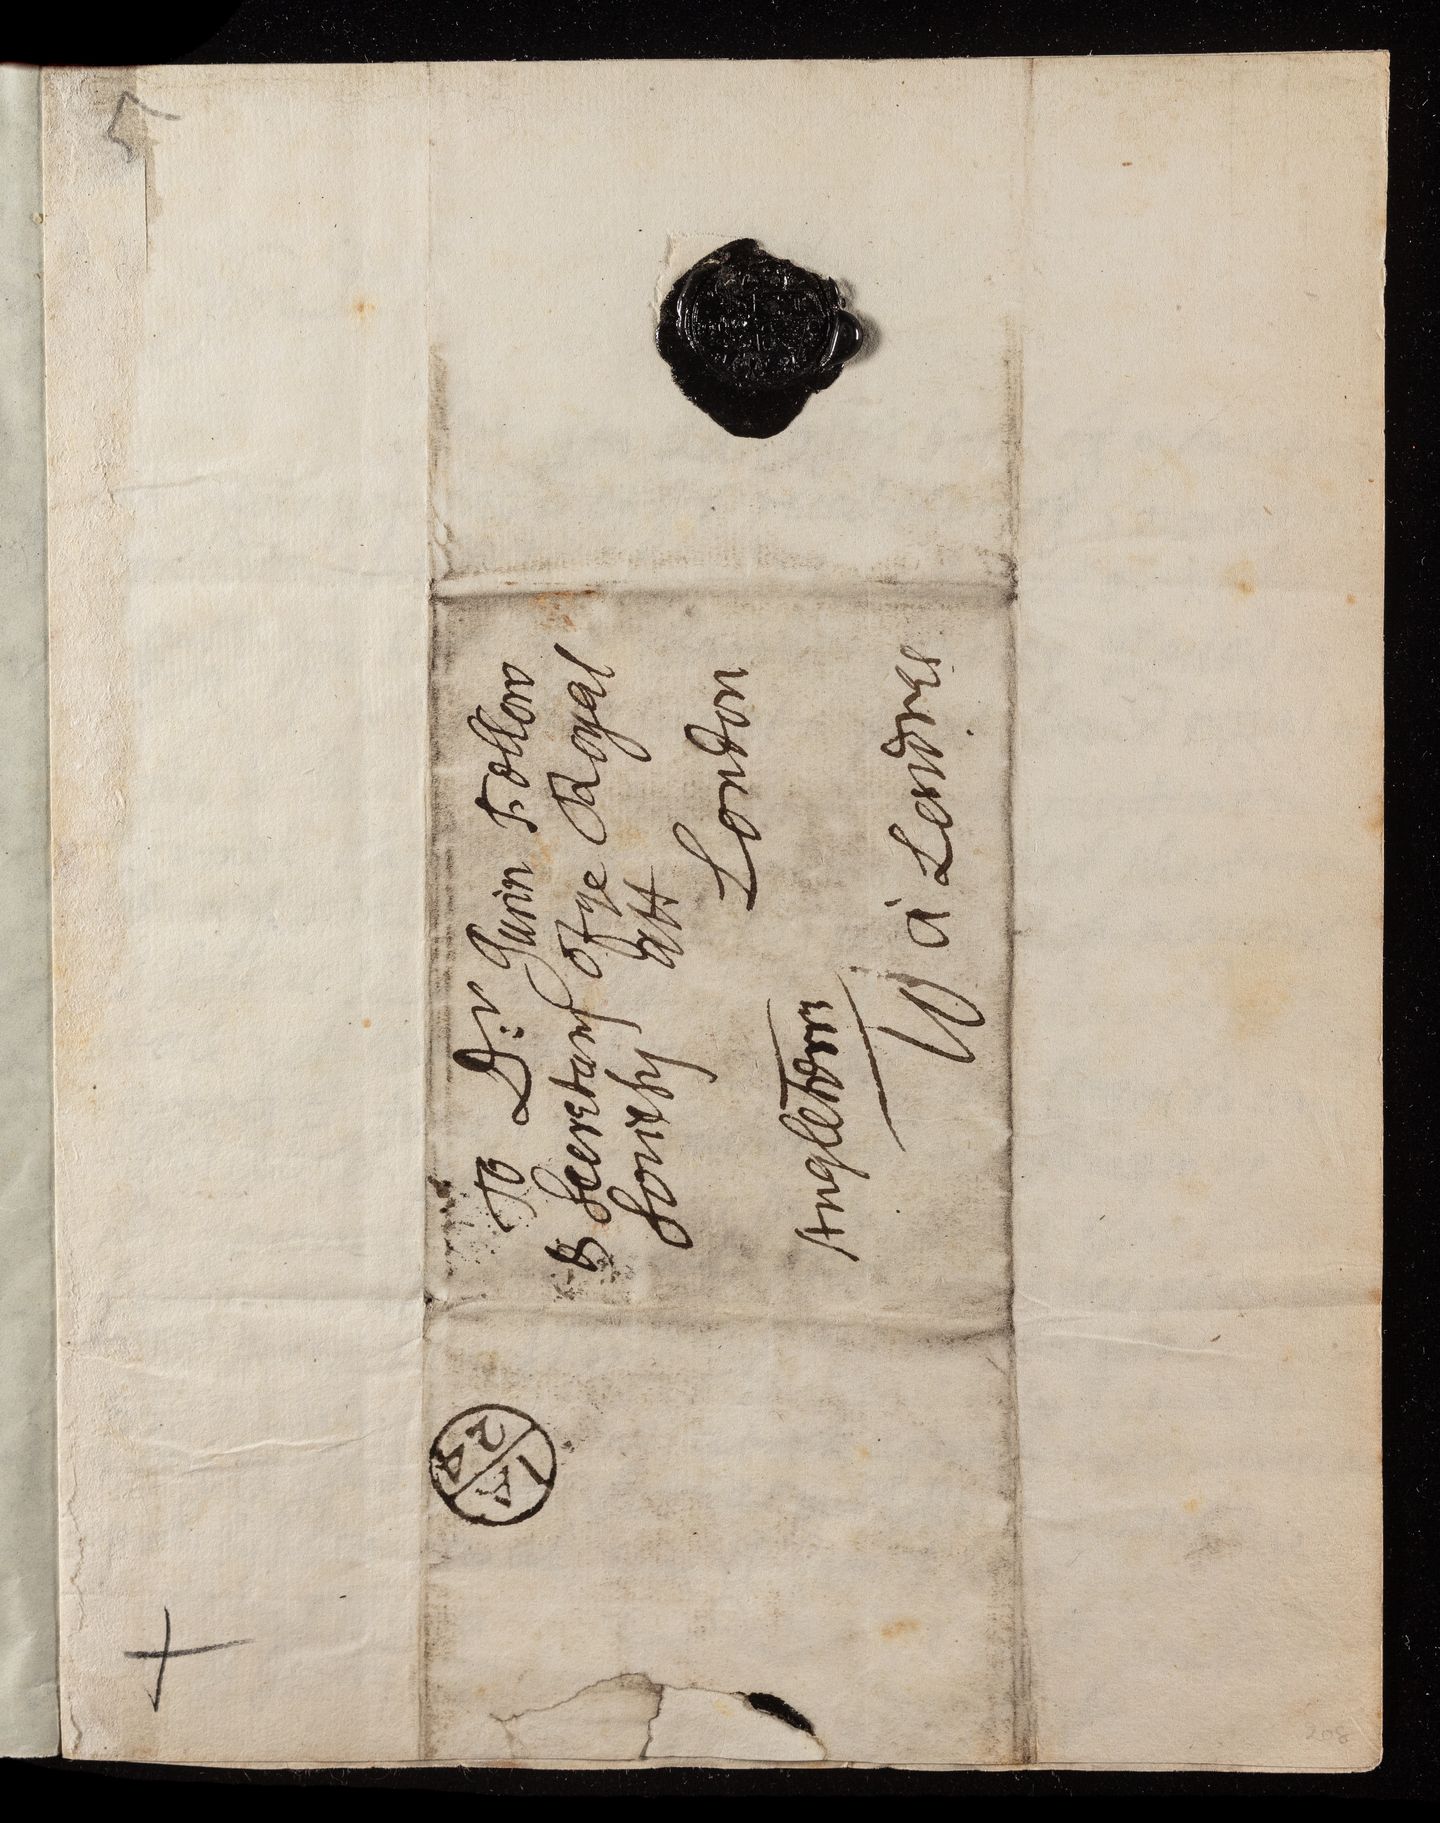 To Dr: Jurin Fellow
& Secretary of ye Royal
Sociéty att
London
Angleterre
10
à Londres
IA
24
208